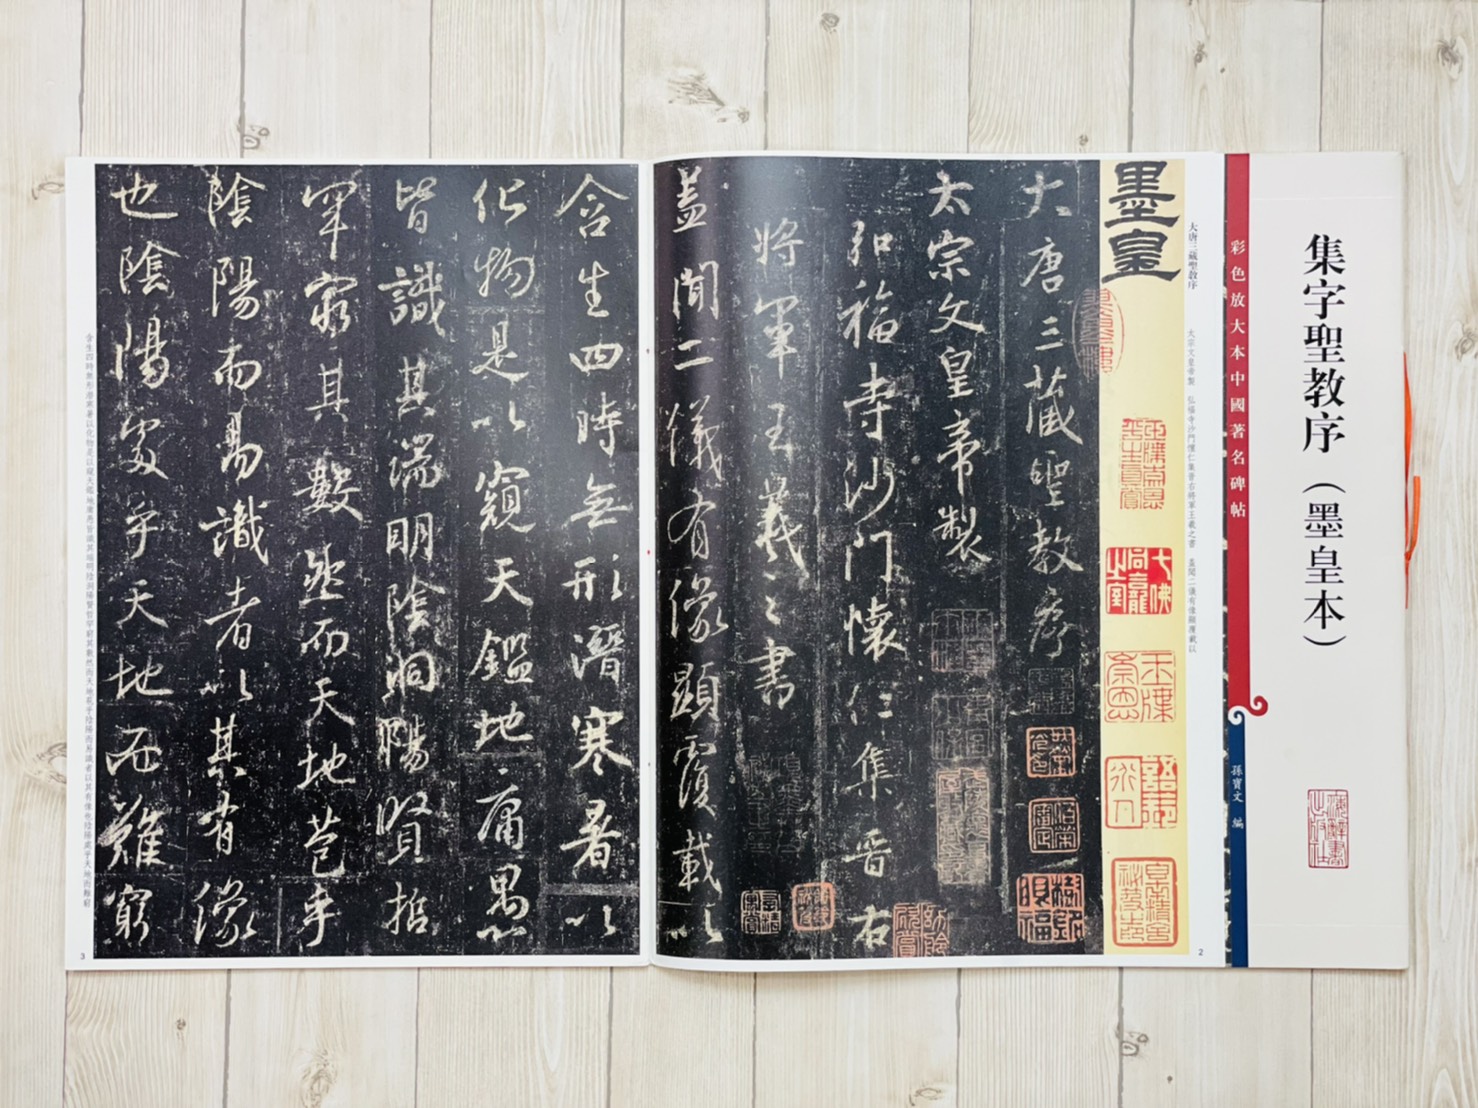 集字聖教序（墨皇本）
彩色放大本中國著名碑帖
孫寶文 編
大唐三藏聖教序
太宗文皇帝製 弘福寺沙門懷仁集晉右將軍王羲之書 蓋聞二儀有像顯覆載以
墨皇
大唐三藏聖教序
太宗文皇帝製
弘福寺沙門懷仁集晉右
將軍王羲之書
蓋聞二儀有像顯覆載以
2
含生四時無形潛寒暑以
化物是以窺天鑑地庸愚
皆識其端明陰洞陽賢哲
罕窮其數然而天地苞乎
陰陽而易識者以其有像
也陰陽處乎天地而難窮
含生四時無形潛寒暑以化物是以窺天鑑地庸愚皆識其端明陰洞陽賢哲罕窮其數然而天地苞乎陰陽而易識者以其有像也陰陽處乎天地而難窮
3